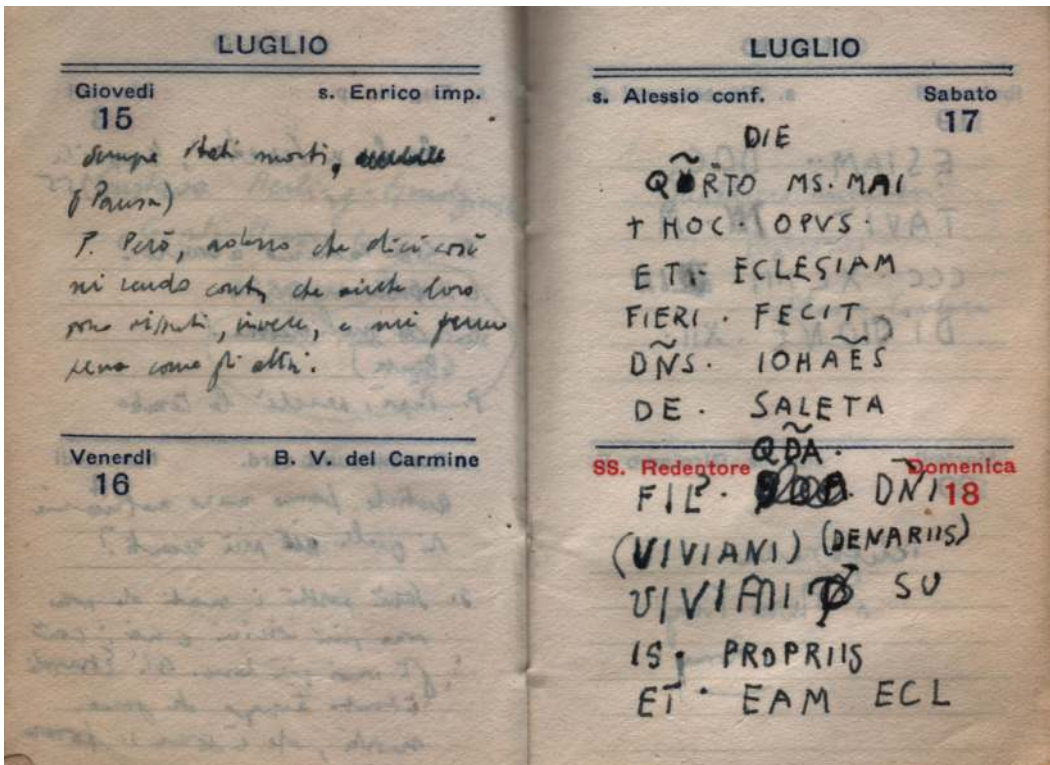 LUGLIO
Giovedi s. Enrico imp.
15
sempre stati morti,
(Pausa)
P. Però, adesso che dici così
mi rendo conto, che anche loro
sono , invece, e mi
come gli altri.
Venerdi B. V. del Carmine
16
LUGLIO
s. Alessio conf. Sabato
17
DIE
QRTO MS. MAI
+ HOC · OPVS ·
ETI· ECLESIAM
FIERI · FECIT
DNS · IOHAES
DE · SALETA
QDA ·
SS. Redentore Domenica
18
FIL · DNI
(VIVIANI) (DENARIIS)
VIVIANI SU
IS · PROPRIIS
ET · EAM ECL